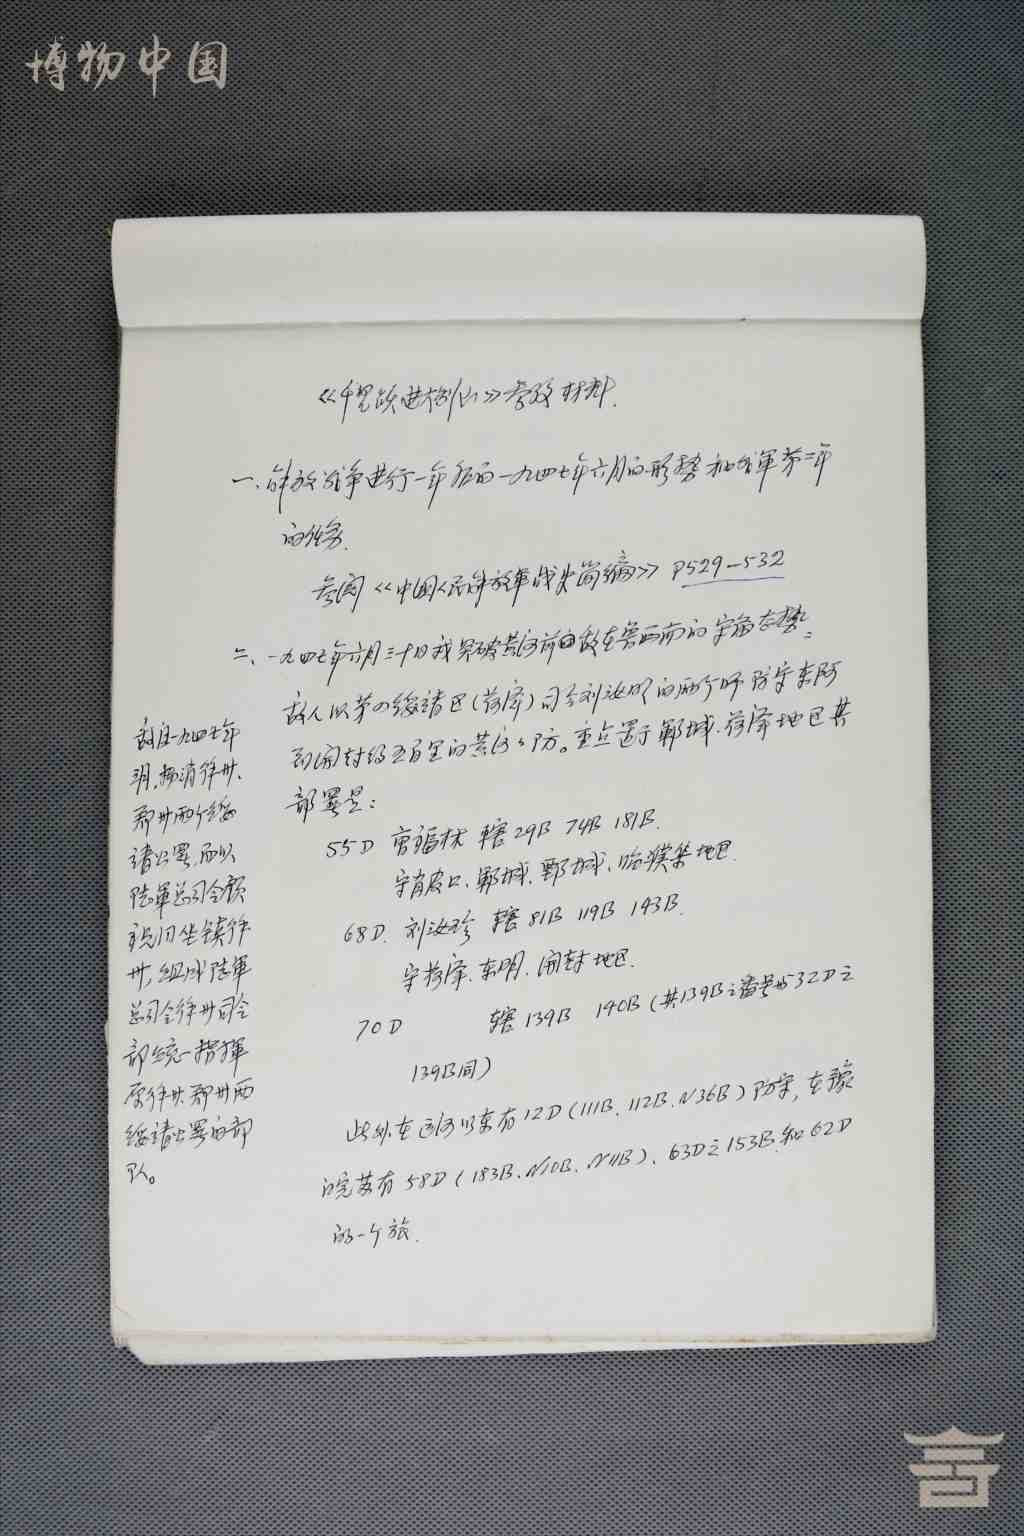 博物中国
《千里跃进大别山》参考材料.
一、解放战争进行一年后的一九四七年六月的形势和我军第二年
的任务.
参阅《中国人民解放军战史简编》P529-532
二、一九四七年六月三十日我突破黄河前由敌在鲁西南的守备态势:
敌人以第四绥靖区(菏泽)司令刘汝明的两个师防守东阿
到开封约五百里的黄河河防。重点置于郓城、菏泽地区其
部署是:
55D 曹福林 辖29B 74B 181B.
守肖皮口、郓城、鄄城、临濮集地区.
68D. 刘汝珍 辖81B 119B 143B.
守菏泽、东明、开封地区.
70D 辖139B 140B(其139B之番号与532D之
139B同)
此外在运河以东有12D(111B、112B、N36B)防守,在豫
皖苏有58D(183B、N10B、N11B)、63D之153B和62D
的一个旅.
敌自一九四七年
三月,撤消徐州、
郑州两个绥
靖公署,而以
陆军总司令顾
祝同坐镇徐
州,组成陆军
总司令徐州司令
部统一指挥
原徐州、郑州两
绥靖公署的部
队。